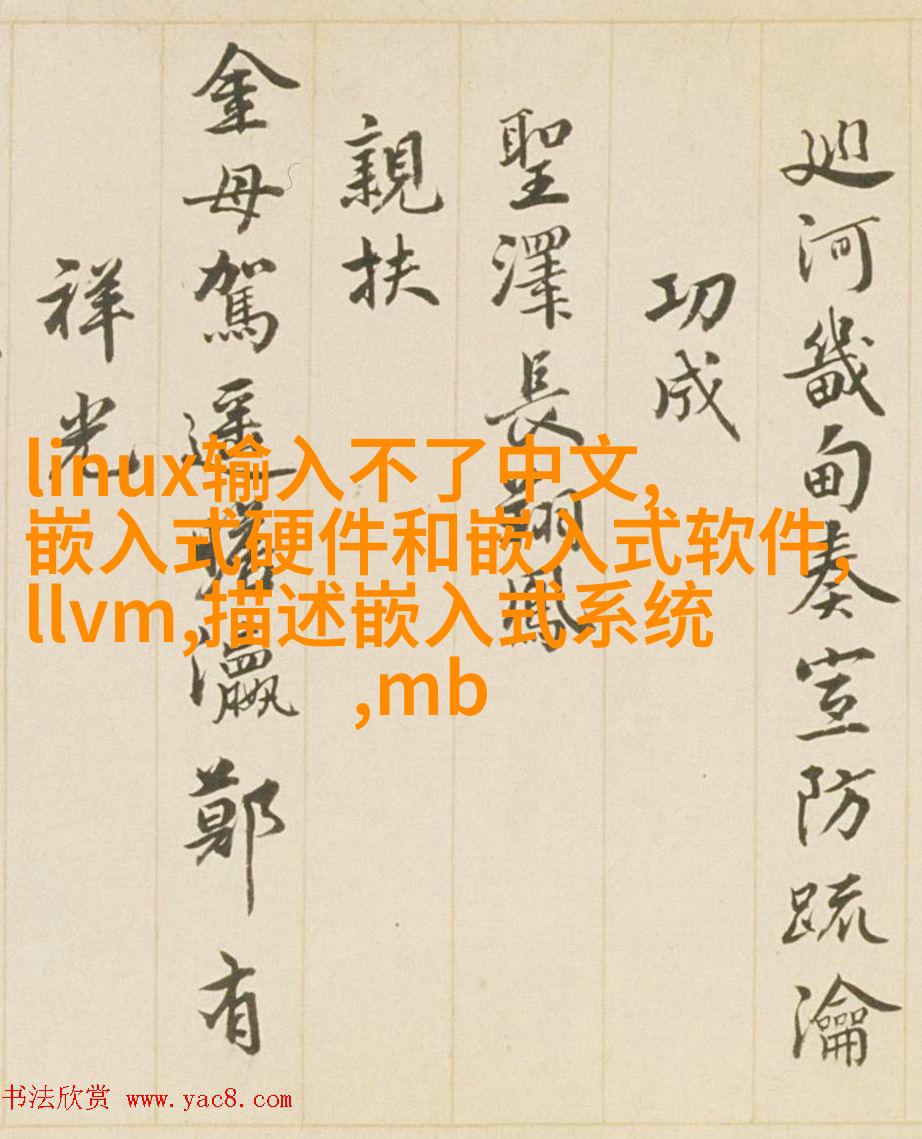 廵河畿甸奏宣防疏瀹
功成
聖澤長翔鳳
親扶
金母駕遥瀛鄭有
祥光
linux输入不了中文,
嵌入式硬件和嵌入式软件,
llvm,描述嵌入式系统
,mb
书法欣赏 www.yac8.com